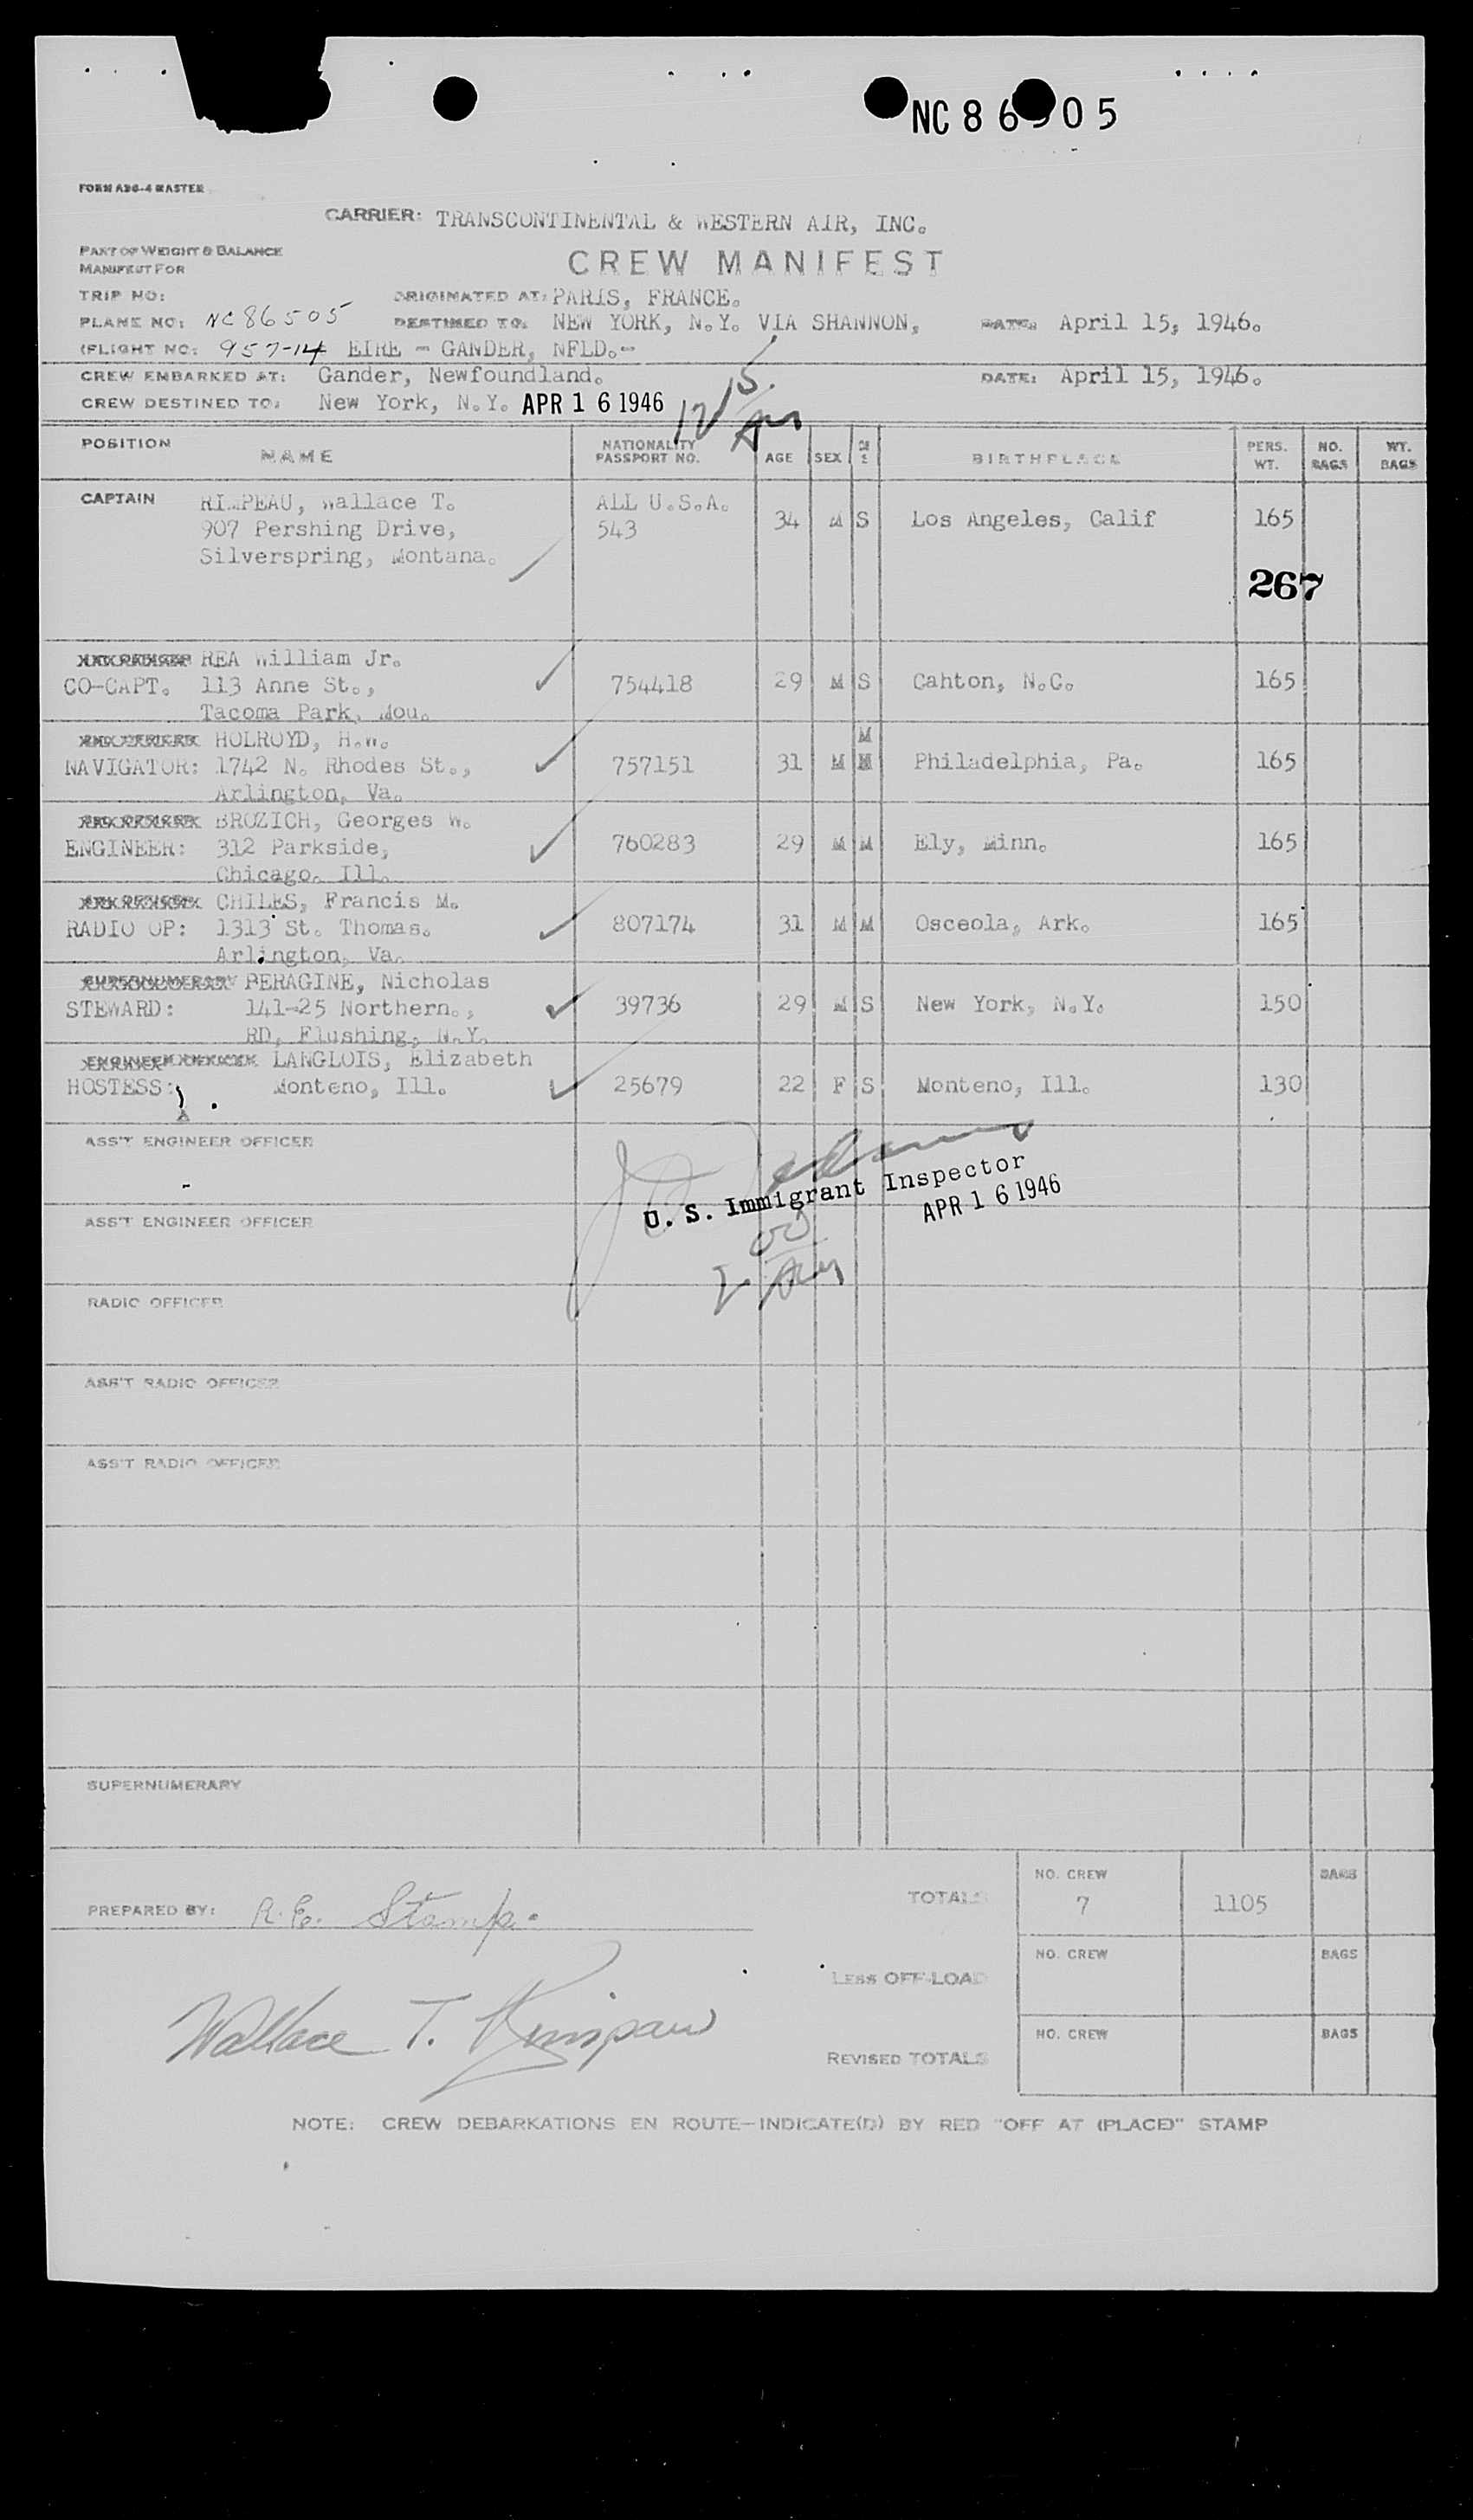 NC 86505
FORM A26-4 MASTER
CARRIER: TRANSCONTINENTAL & WESTERN AIR, INC.
PART OF WEIGHT & BALANCE
MANIFEST FOR
CREW MANIFEST
TRIP NO: ORIGINATED AT: PARIS, FRANCE.
PLANE NO: NC86505 DESTINED TO: NEW YORK, N.Y. VIA SHANNON, DATE: April 15, 1946.
(FLIGHT NO: 957-14 EIRE - GANDER, NFLD.-
CREW EMBARKED AT: Gander, Newfoundland. DATE: April 15, 1946.
CREW DESTINED TO: New York, N.Y. APR 16 1946 12 15 Am
POSITION NAME NATIONALITY PASSPORT NO. AGE SEX BIRTHPLACE PERS. WT. NO. BAGS WT. BAGS
CAPTAIN RIMPEAU, Wallace T. ALL U.S.A.
907 Pershing Drive, 543 34 M S Los Angeles, Calif 165
Silverspring, Montana.
267
REA William Jr.
CO-CAPT. 113 Anne St., 754418 29 M S Cahton, N.C. 165
Tacoma Park, Mou.
HOLROYD, H.W. M
NAVIGATOR: 1742 N. Rhodes St., 757151 31 M Philadelphia, Pa. 165
Arlington, Va.
BROZICH, Georges W.
ENGINEER: 312 Parkside, 760283 29 M M Ely, Minn. 165
Chicago. Ill.
CHILES, Francis M.
RADIO OP: 1313 St. Thomas. 807174 31 M M Osceola, Ark. 165
Arlington, Va.
SUPERNUMERARY PERAGINE, Nicholas
STEWARD: 141-25 Northern., 39736 29 M S New York, N.Y. 150
RD, Flushing, N.Y.
LANGLOIS, Elizabeth
HOSTESS: Monteno, Ill. 25679 22 F S Monteno, Ill. 130
ASS'T ENGINEER OFFICER
U. S. Immigrant Inspector
APR 16 1946
ASS'T ENGINEER OFFICER
00
Am
RADIO OFFICER
ASS'T RADIO OFFICER
ASS'T RADIO OFFICER
SUPERNUMERARY
PREPARED BY: R.E. Stamp. TOTALS NO. CREW 7 1105 BAGS
LESS OFF-LOAD NO. CREW BAGS
Wallace T. Rimpau
REVISED TOTALS NO. CREW BAGS
NOTE: CREW DEBARKATIONS EN ROUTE—INDICATE(D) BY RED "OFF AT (PLACE)" STAMP